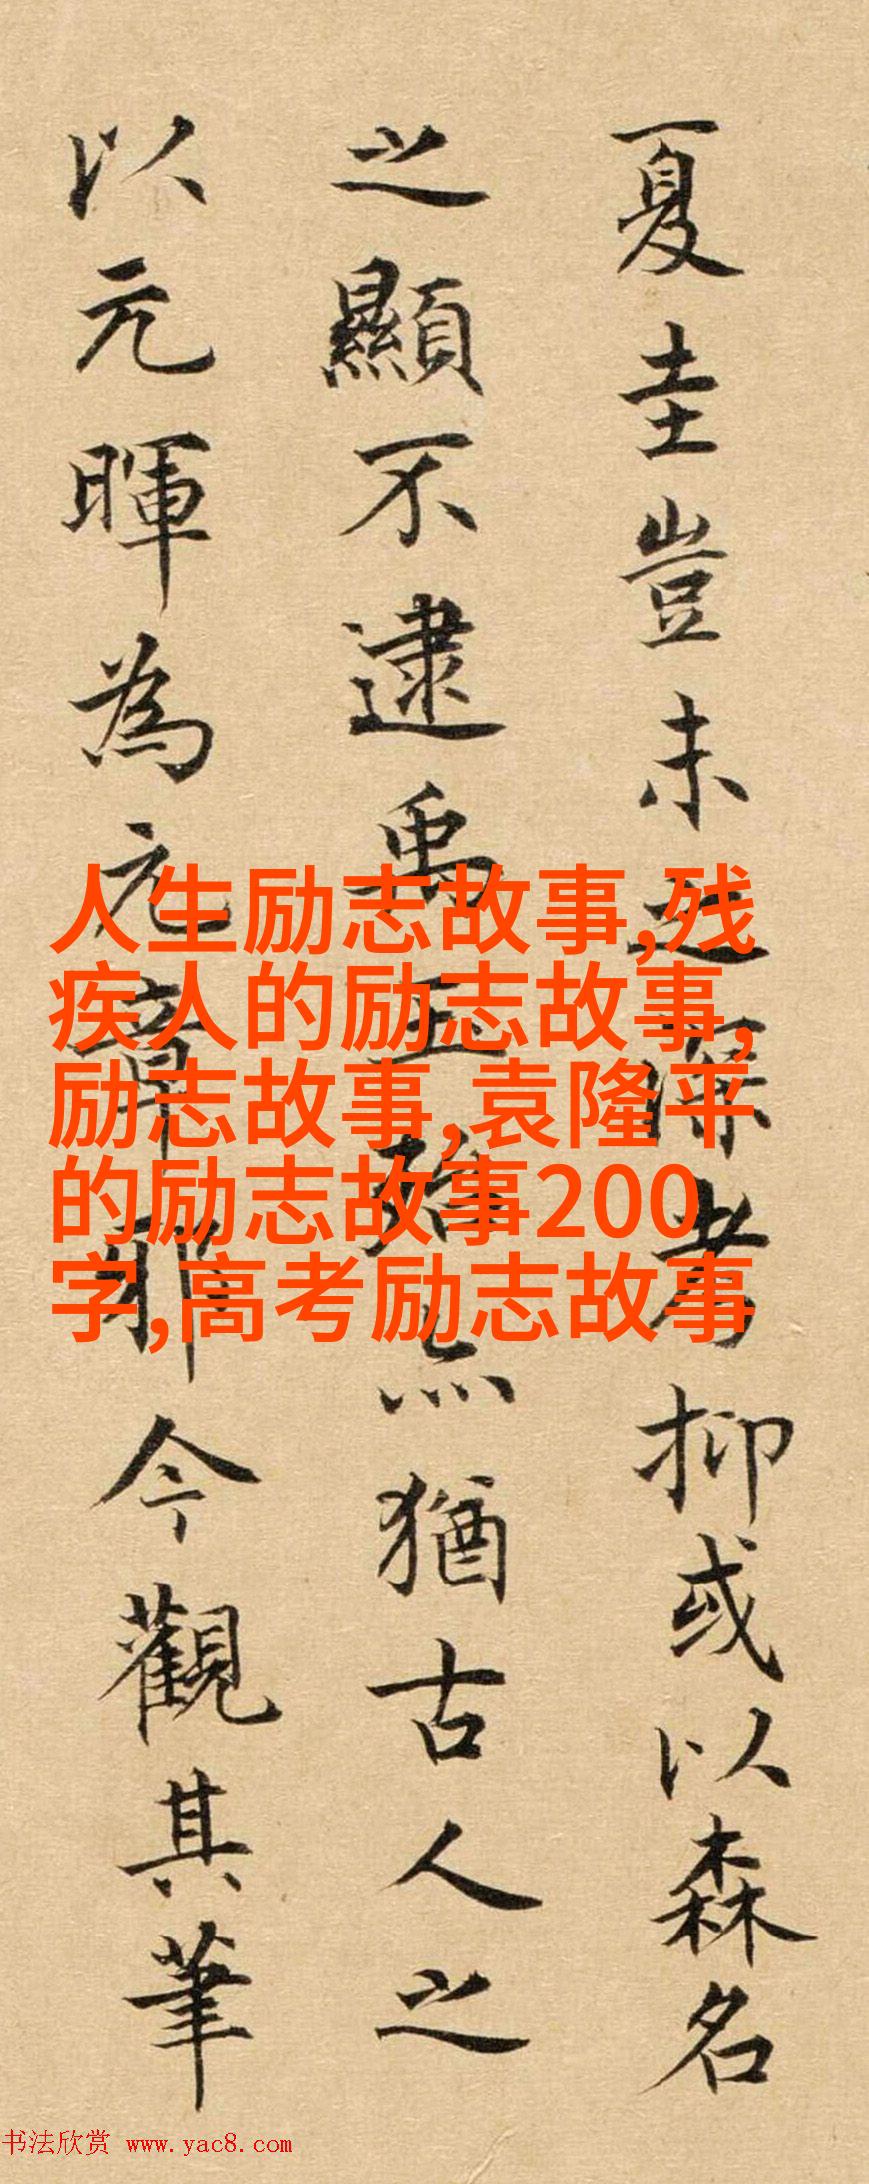 夏圭豈未之深考抑或以森名
之顯不逮禹玉殆亦猶古人之
以元暉為元章邪今觀其筆
人生励志故事,残
疾人的励志故事,
励志故事,袁隆平
的励志故事200
字,高考励志故事
书法欣赏 www.yac8.com